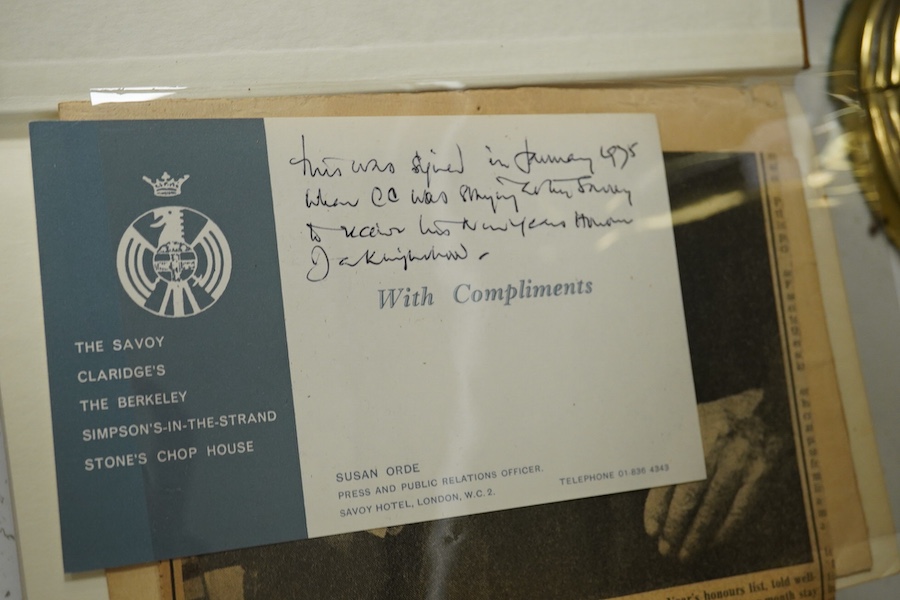 This was signed in January 1975
when CC was staying at the Savoy
to receive his New Years Honour
of a Knighthood.
With Compliments
THE SAVOY
CLARIDGE'S
THE BERKELEY
SIMPSON'S-IN-THE-STRAND
STONE'S CHOP HOUSE
SUSAN ORDE
PRESS AND PUBLIC RELATIONS OFFICER.
SAVOY HOTEL, LONDON, W.C.2.
TELEPHONE 01-836 4343
honours list, told well-
month stay